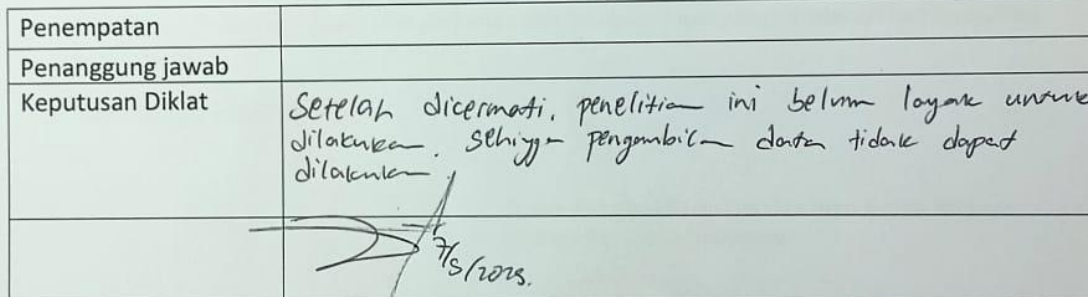 Penempatan
Penanggung jawab
Keputusan Diklat
Setelah dicermati, penelitian ini belum layak untuk
dilakukan. Sehingga pengambilan data tidak dapat
dilakukan.
7/5/2025.